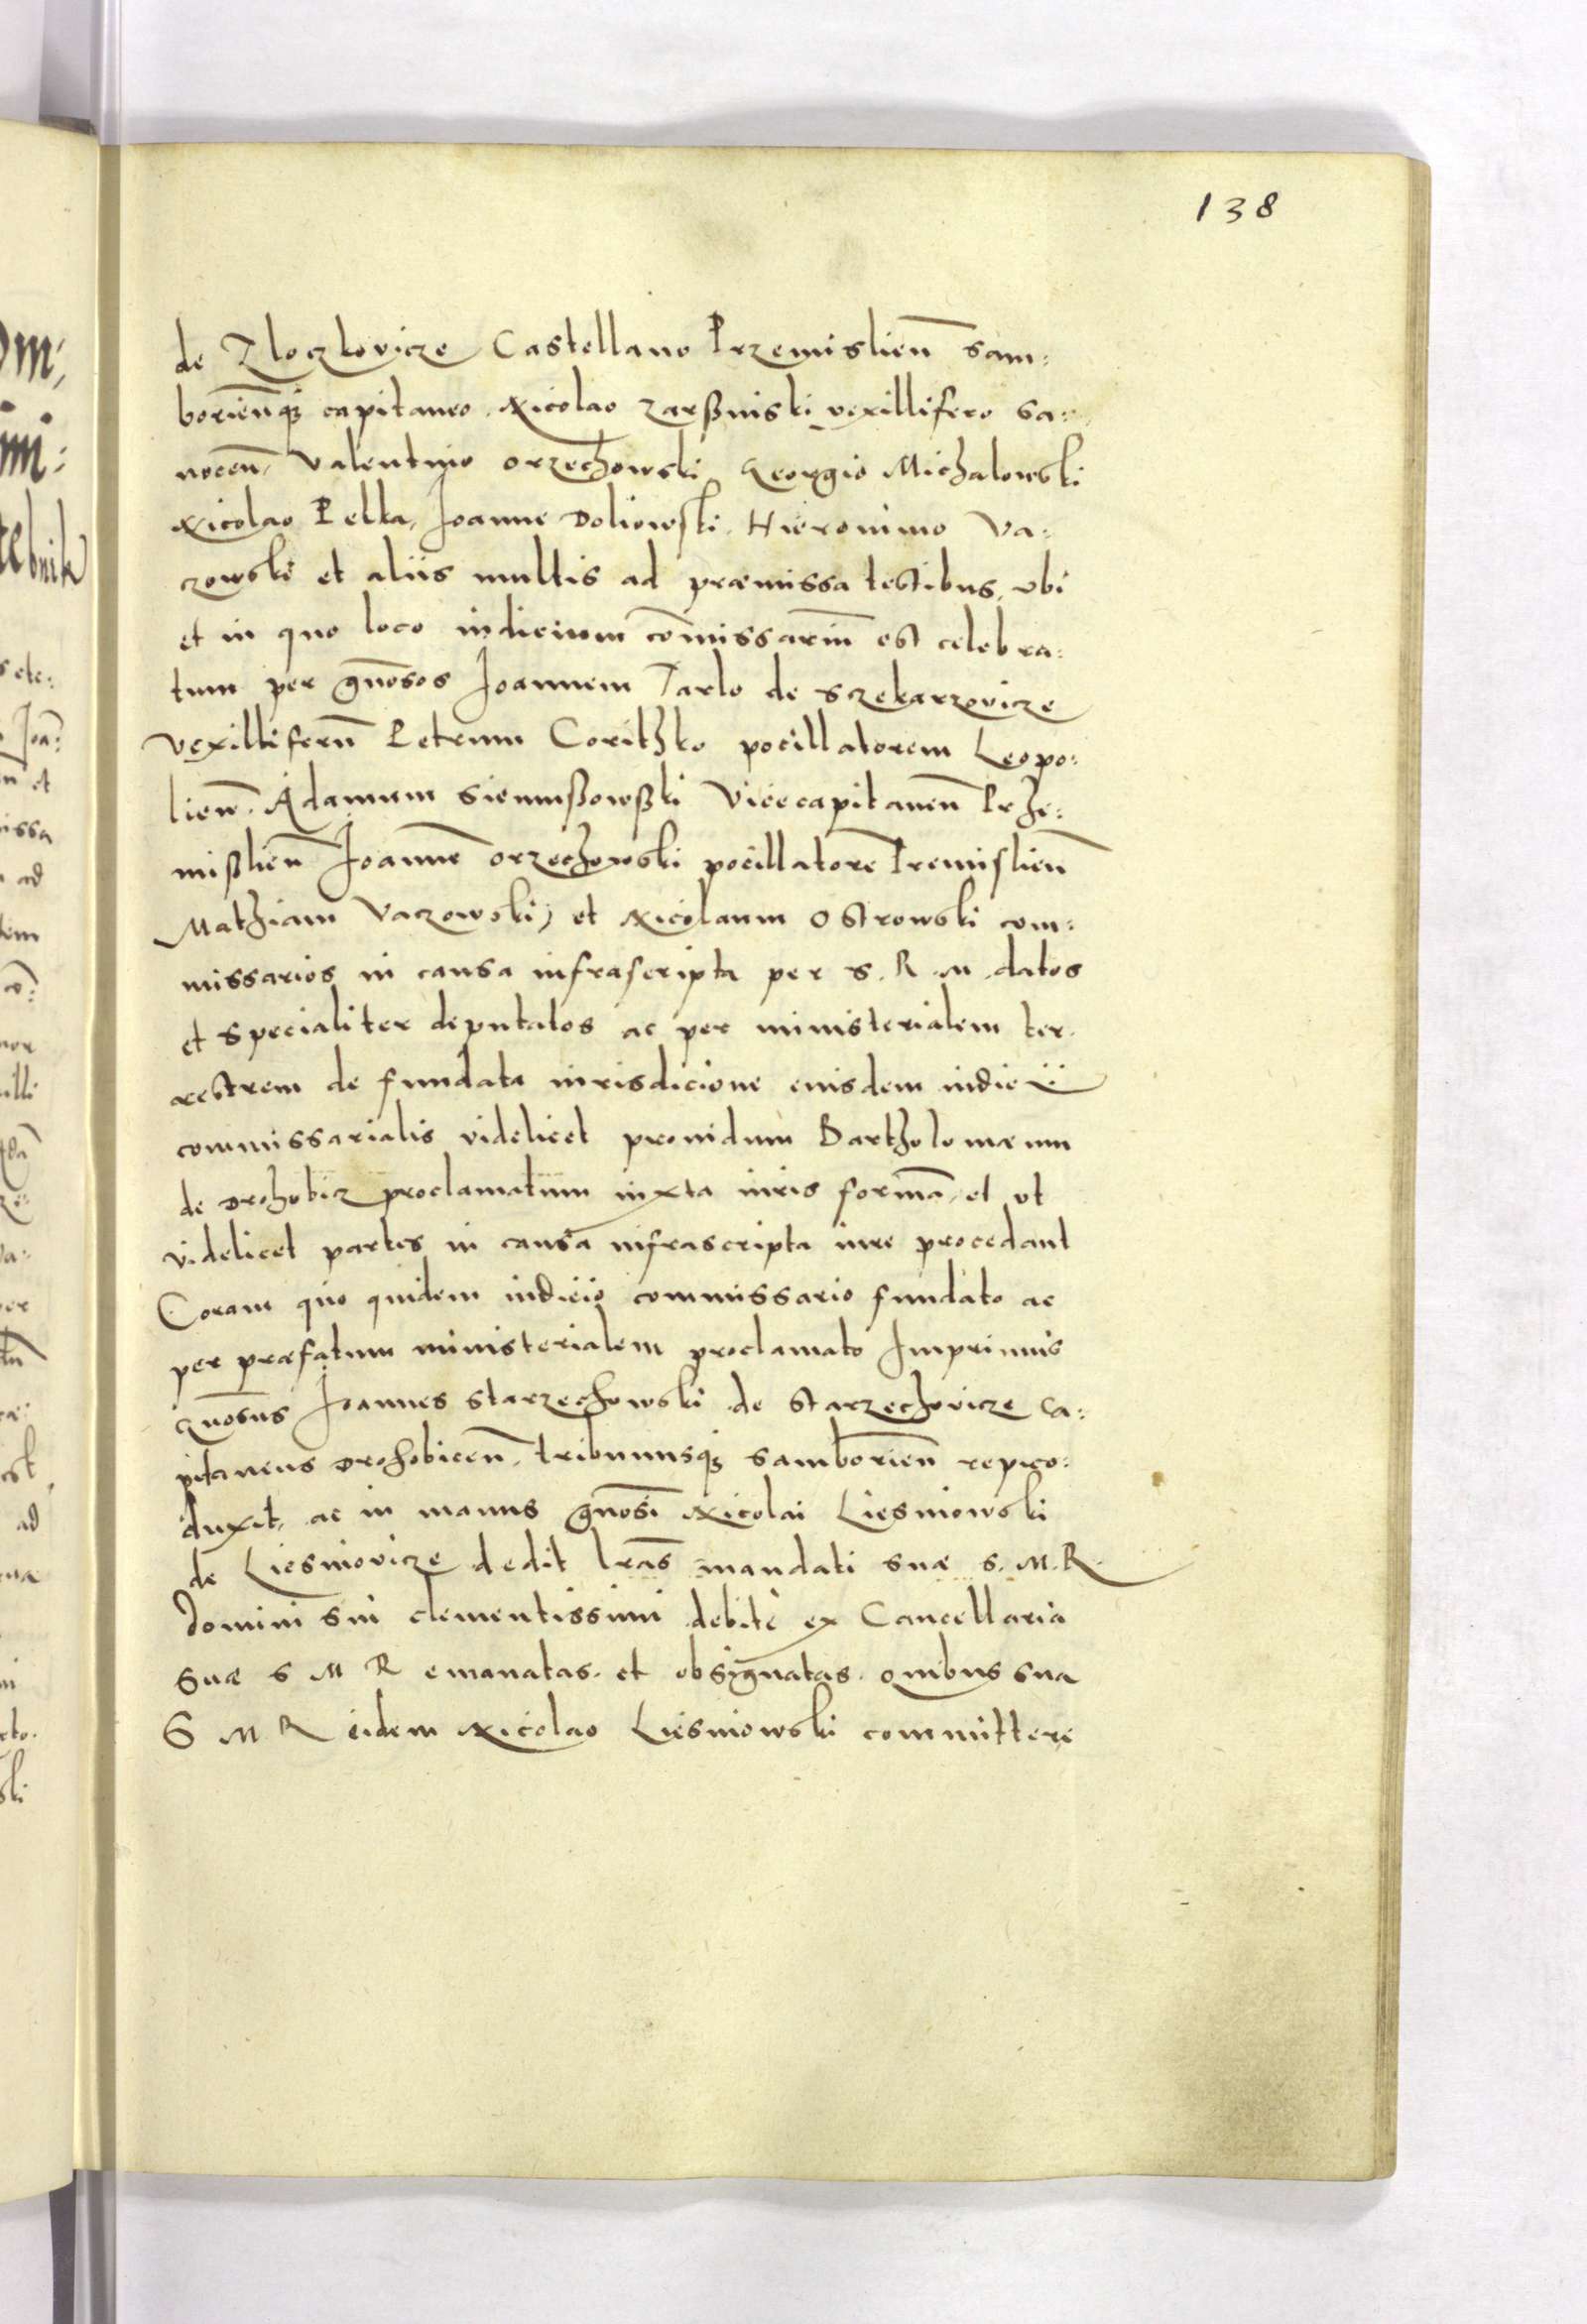 138
de Zloczkovicze Castellano Przemislien̄ sam:
borien̄q3 capitaneo. Nicolao Zarßniski vexillifero sa:
nocen̄, Valentino Orzechowski, Georgio Michalowski
Nicolao Pella, Joanne Doliowski, Hieronimo Va:
czowski et aliis multis ad præmissa testibus, vbi
et in quo loco iudicium com̄issariū est celebra:
tum per gn̄osos Joannem Tarlo de Sczekarzovicze
Vexilliferū Petrum Corithko pocillatorem Leopo:
lien̄. Adamum Sienußowßki Vicecapitaneū Prze:
mißlien̄ Joannē Orzechowski pocillatorē Premislien̄
Mathiam Vaczowski, et Nicolaum Ostrowski com:
missarios in causa infrascripta per S. R. M. datos
et specialiter deputatos ac per ministerialem ter.
restrem de fundata iurisdicione euisdem iudicii
commissarialis videlicet prouidum Bartholomæum
de Drohobicz proclamatum iuxta iuris formā, et vt
videlicet partes in causa infrascripta iure procedant
Coram quo quidem iudicio commissario fundato ac
per præfatum ministerialem proclamato Imprimis
Gn̄osus Joannes Starzechowski de Starzechovicze Ca:
pitaneus Drohobicen̄, tribunusq3 Samborien̄ repro:
duxit, ac in manus gn̄osi Nicolai Liesniowski
de Liesniovicze dedit lr̄as mandati suæ S. M. R.
Domini sui clementissimi debite ex Cancellaria
Suæ S M R emanatas. et obsignatas. quibus sua
S M R eidem Nicolao Liesniowski committere